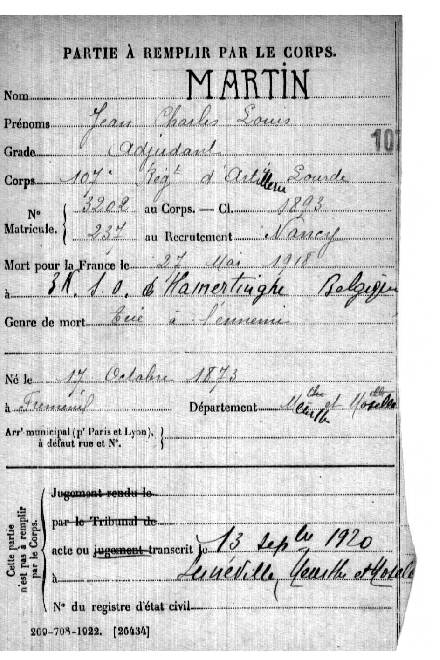 PARTIE À REMPLIR PAR LE CORPS.
Nom MARTIN
Prénoms Jean Charles Louis
Grade Adjudant
107
Corps 107e Régt d'Artillerie Lourde
No Matricule. { 3202 au Corps. — Cl. 1893
237 au Recrutement Nancy
Mort pour la France le 27 Mai 1918
à 3K. S.O. de Vlamertinghe Belgique
Genre de mort Tué à l'ennemi
Né le 17 Octobre 1873
à Département Meurthe et Moselle
Arrt municipal (pr Paris et Lyon), à défaut rue et No. }
Cette partie n'est pas à remplir par le Corps.
Jugement rendu le
par le Tribunal de
acte ou jugement transcrit le 13 sepbre 1920
à Meurthe et Moselle
No du registre d'état civil
269-708-1922. [26434]